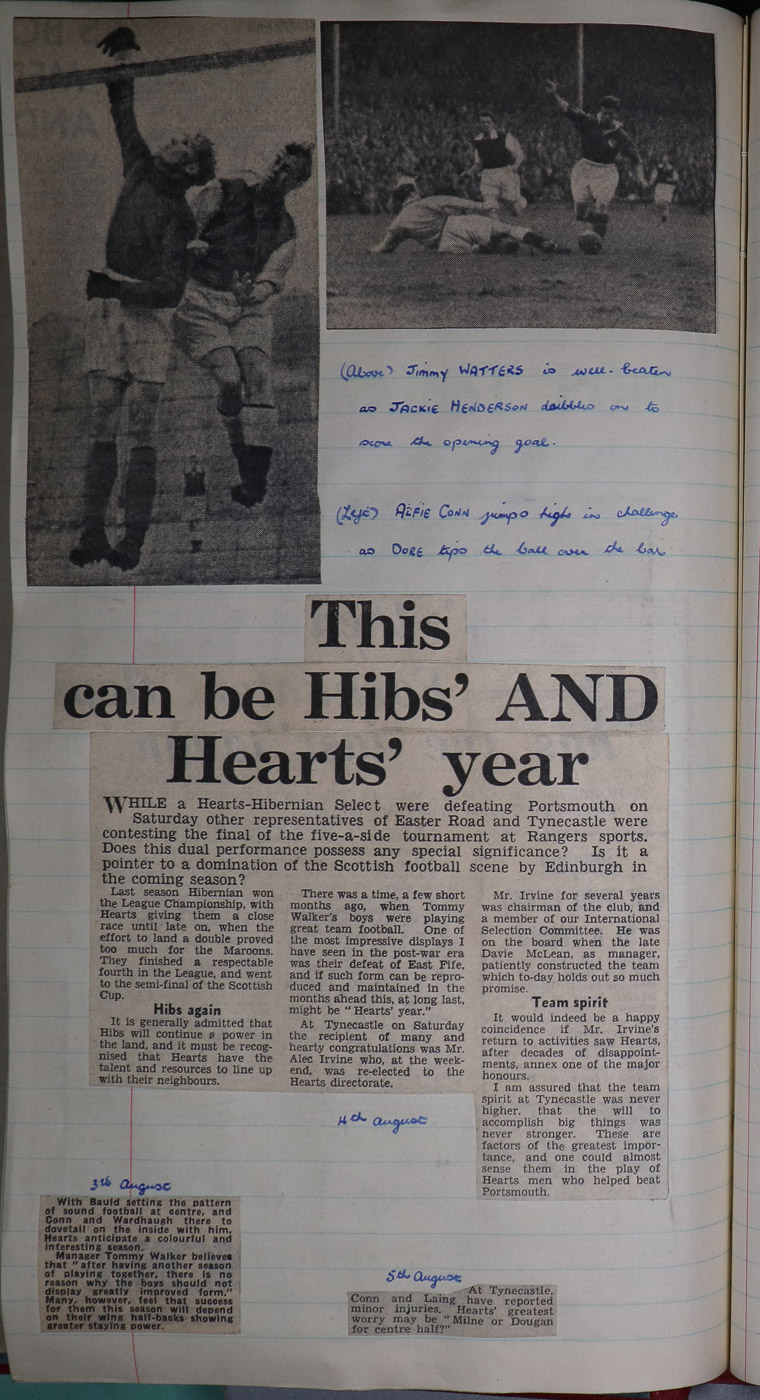 (Above) Jimmy WATTERS is well-beaten
as JACKIE HENDERSON dribbles on to
score the opening goal.
(Left) ALFIE CONN jumps high in challenge
as DORE tips the ball over the bar
This
can be Hibs' AND
Hearts' year
WHILE a Hearts-Hibernian Select were defeating Portsmouth on
Saturday other representatives of Easter Road and Tynecastle were
contesting the final of the five-a-side tournament at Rangers sports.
Does this dual performance possess any special significance? Is it a
pointer to a domination of the Scottish football scene by Edinburgh in
the coming season?
Last season Hibernian won
the League Championship, with
Hearts giving them a close
race until late on, when the
effort to land a double proved
too much for the Maroons.
They finished a respectable
fourth in the League, and went
to the semi-final of the Scottish
Cup.
Hibs again
It is generally admitted that
Hibs will continue a power in
the land, and it must be recog-
nised that Hearts have the
talent and resources to line up
with their neighbours.
There was a time, a few short
months ago, when Tommy
Walker's boys were playing
great team football. One of
the most impressive displays I
have seen in the post-war era
was their defeat of East Fife,
and if such form can be repro-
duced and maintained in the
months ahead this, at long last,
might be "Hearts' year."
At Tynecastle on Saturday
the recipient of many and
hearty congratulations was Mr.
Alec Irvine who, at the week-
end, was re-elected to the
Hearts directorate.
Mr. Irvine for several years
was chairman of the club, and
a member of our International
Selection Committee. He was
on the board when the late
Davie McLean, as manager,
patiently constructed the team
which to-day holds out so much
promise.
Team spirit
It would indeed be a happy
coincidence if Mr. Irvine's
return to activities saw Hearts,
after decades of disappoint-
ments, annex one of the major
honours.
I am assured that the team
spirit at Tynecastle was never
higher, that the will to
accomplish big things was
never stronger. These are
factors of the greatest impor-
tance, and one could almost
sense them in the play of
Hearts men who helped beat
Portsmouth.
4th August
3rd August
With Bauld setting the pattern
of sound football at centre, and
Conn and Wardhaugh there to
dovetail on the inside with him,
Hearts anticipate a colourful and
interesting season.
Manager Tommy Walker believes
that "after having another season
of playing together, there is no
reason why the boys should not
display greatly improved form."
Many, however, feel that success
for them this season will depend
on their wing half-backs showing
greater staying power.
5th August
At Tynecastle,
Conn and Laing have reported
minor injuries. Hearts' greatest
worry may be "Milne or Dougan
for centre half?"